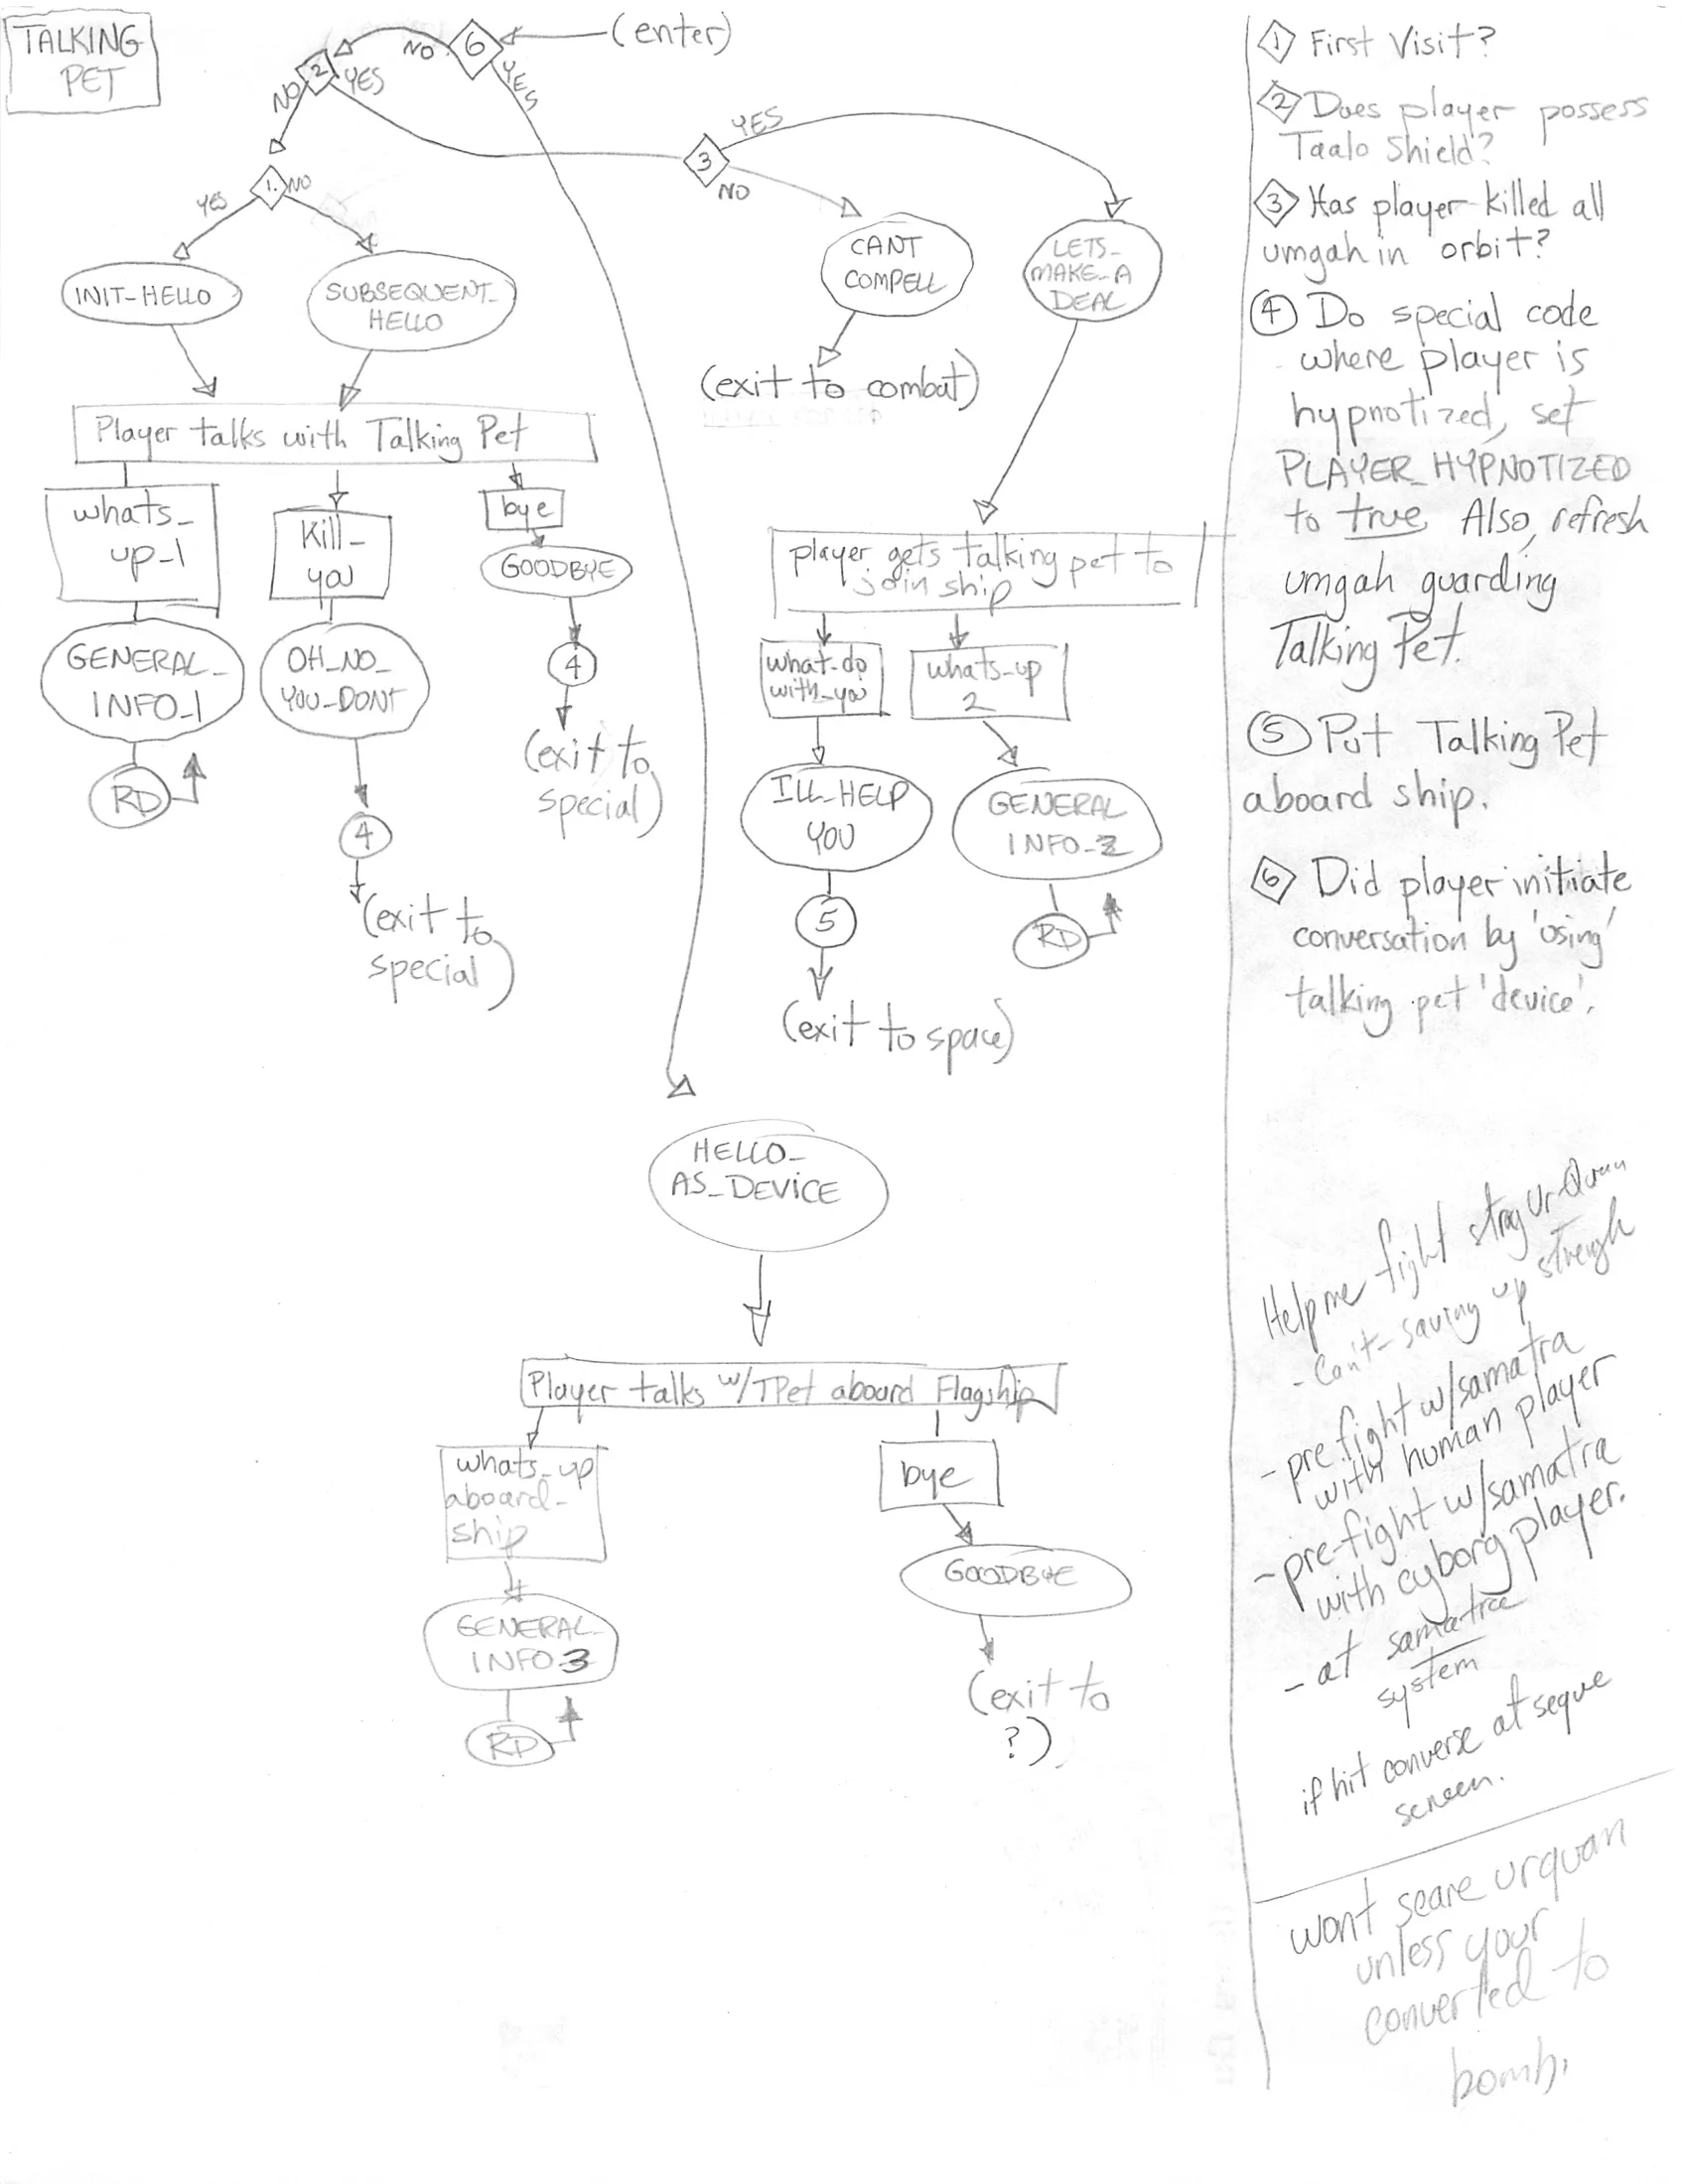 TALKING
PET
(enter)
6
NO
YES
2
NO
YES
1.
YES
NO
3
YES
NO
INIT_HELLO
SUBSEQUENT_
HELLO
CANT
COMPELL
LETS_
MAKE_A
DEAL
(exit to combat)
Player talks with Talking Pet
whats_
up_1
kill_
you
bye
GOODBYE
GENERAL_
INFO_1
OH_NO_
YOU_DONT
4
(exit to
special)
RD
4
(exit to
special)
player gets talking pet to
join ship
what_do
with_you
whats_up
2
ILL_HELP
YOU
GENERAL
INFO_2
5
RD
(exit to space)
HELLO_
AS_DEVICE
Player talks w/TPet aboard Flagship
whats_up
aboard_
ship
bye
GENERAL_
INFO_3
GOODBYE
RD
(exit to
?)
1 First Visit?
2 Does player possess
Taalo Shield?
3 Has player killed all
umgah in orbit?
4 Do special code
where player is
hypnotized, set
PLAYER_HYPNOTIZED
to true. Also, refresh
umgah guarding
Talking Pet.
5 Put Talking Pet
aboard ship.
6 Did player initiate
conversation by 'using'
talking pet 'device'.
Help me fight stray Ur Quan
- Can't - saving up strength
- pre fight w/samatra
with human player
- pre-fight w/samatra
with cyborg player.
- at samatra
system
if hit converse at segue
screen.
wont scare urquan
unless your
converted to
bomb.